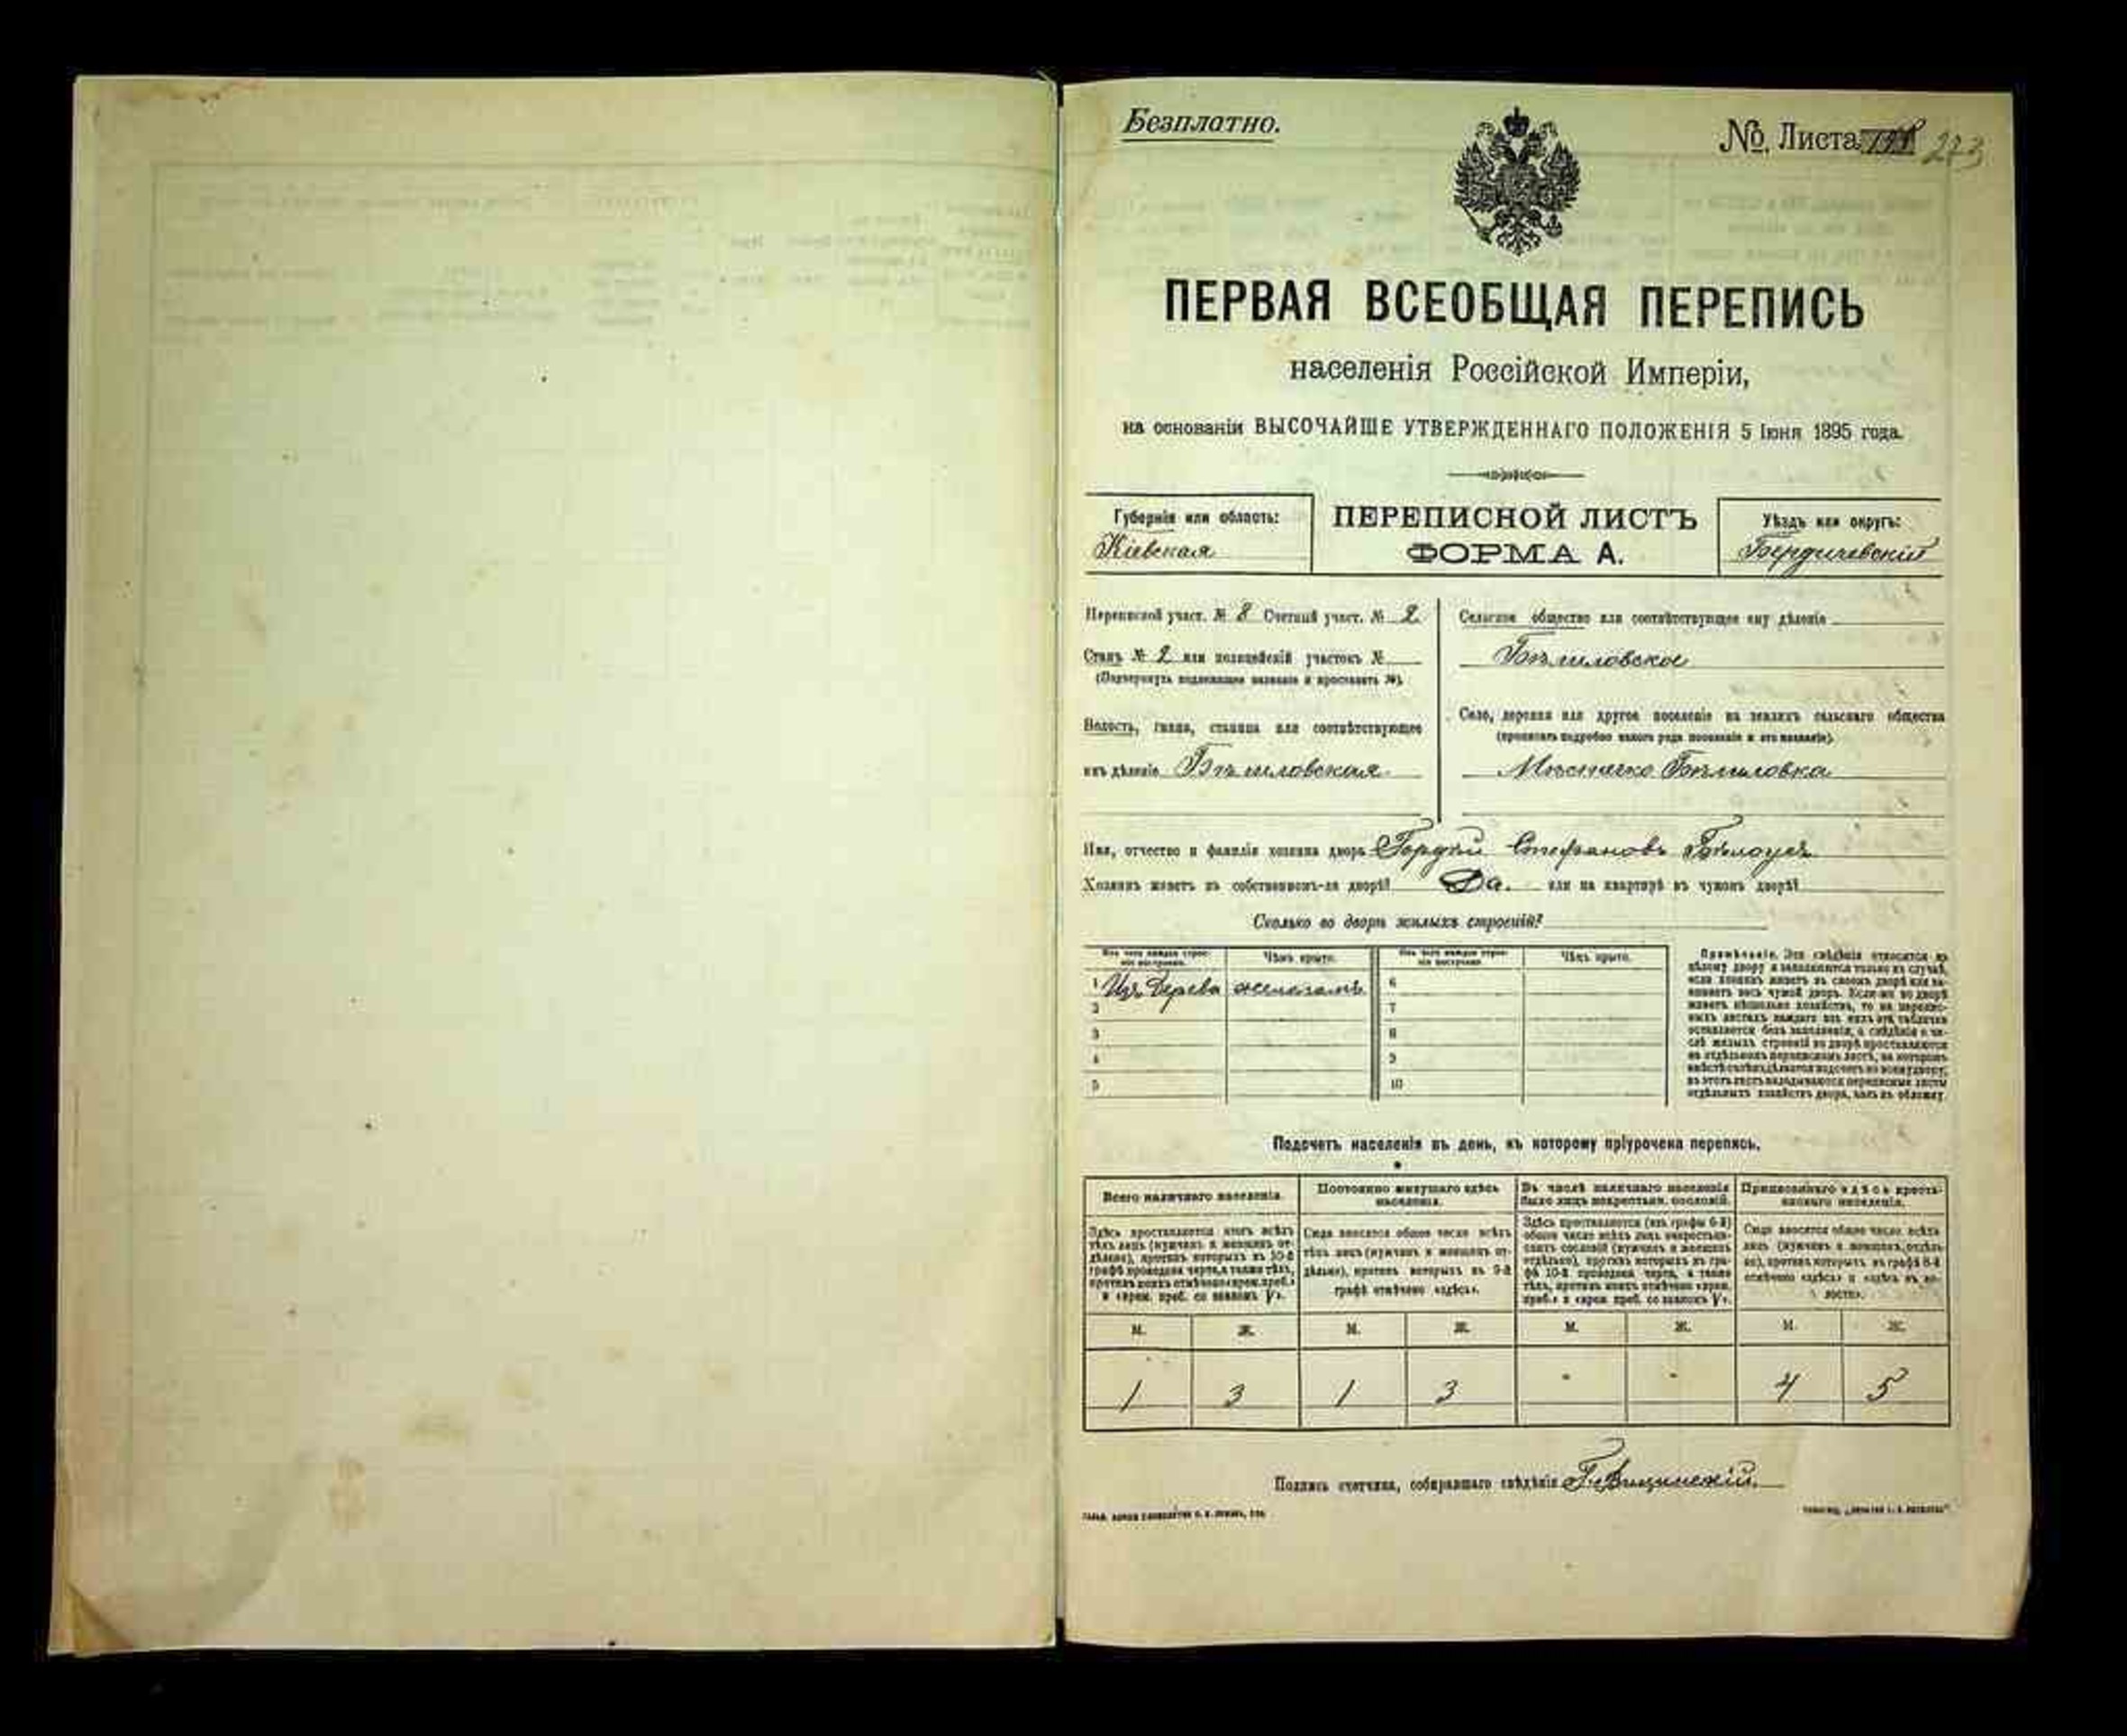 Безплатно.
№ Листа 273
ПЕРВАЯ ВСЕОБЩАЯ ПЕРЕПИСЬ
населенія Россійской Имперіи,
на основаніи ВЫСОЧАЙШЕ УТВЕРЖДЕННАГО ПОЛОЖЕНІЯ 5 Іюня 1895 года.
Губернія или область:
Кіевская
ПЕРЕПИСНОЙ ЛИСТЪ
ФОРМА А.
Уѣздъ или округъ:
Бердичевскій
Переписной участ. № 8 Счетный участ. № 2
Станъ № 2 или полицейскій участокъ №
(Подчеркнуть подлежащее названіе и проставить №).
Волость, гмина, станица или соотвѣтствующее
имъ дѣленіе Бѣлиловская
Сельское общество или соотвѣтствующее ему дѣленіе
Бѣлиловское
Село, деревня или другое поселеніе на земляхъ сельскаго общества
(прописать подробно какого рода поселеніе и его названіе).
Мѣстечко Бѣлиловка
Имя, отчество и фамилія хозяина двора Гордѣй Стефановъ Бѣлоусъ
Хозяинъ живетъ въ собственномъ-ли дворѣ? Да. или на квартирѣ въ чужомъ дворѣ?
Сколько во дворѣ жилыхъ строеній?
Изъ чего каждое строеніе построено.
Чѣмъ крыто.
Изъ чего каждое строеніе построено.
Чѣмъ крыто.
1 Изъ дерева
6
2
7
3
8
4
9
5
10
Примѣчаніе. Эти свѣдѣнія относятся къ
цѣлому двору и заполняются только въ случаѣ,
если хозяинъ живетъ въ своемъ дворѣ или занимаетъ
весь чужой дворъ. Если-же во дворѣ
живетъ нѣсколько хозяйствъ, то на переписныхъ
листахъ каждаго изъ нихъ эта табличка
оставляется безъ заполненія, а свѣдѣнія о числѣ
жилыхъ строеній во дворѣ проставляются
на отдѣльномъ переписномъ листѣ, на которомъ
отдѣльныхъ хозяйствъ двора, какъ въ обложку.
Подсчетъ населенія въ день, къ которому пріурочена перепись.
Всего наличнаго населенія.
Постоянно живущаго здѣсь населенія.
Въ числѣ наличнаго населенія было лицъ некрестьян. сословій.
Приписаннаго здѣсь крестьянскаго населенія.
Здѣсь проставляется итогъ всѣхъ тѣхъ лицъ (мужчинъ и женщинъ отдѣльно), противъ которыхъ въ 10-й графѣ проведена черта, а также тѣхъ, противъ коихъ отмѣчено «врем. преб.» и «врем. преб. со знакомъ V».
Сюда вносится общее число всѣхъ тѣхъ лицъ (мужчинъ и женщинъ отдѣльно), противъ которыхъ въ 9-й графѣ отмѣчено «здѣсь».
Здѣсь проставляется (изъ графы 6-й) общее число всѣхъ лицъ некрестьянскихъ сословій (мужчинъ и женщинъ отдѣльно), противъ которыхъ въ графѣ 10-й проведена черта, а также тѣхъ, противъ коихъ отмѣчено «врем. преб.» и «врем. преб. со знакомъ V».
Сюда вносится общее число всѣхъ лицъ (мужчинъ и женщинъ, отдѣльно), противъ которыхъ въ графѣ 8-й отмѣчено «здѣсь» и «здѣсь въ волости».
М. Ж. М. Ж. М. Ж. М. Ж.
1 3 1 3 " " 4 5
Подпись счетчика, собиравшаго свѣдѣнія